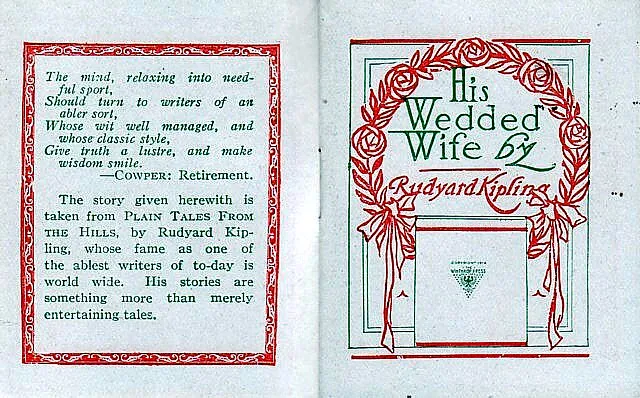 The mind, relaxing into need-
ful sport,
Should turn to writers of an
abler sort,
Whose wit well managed, and
whose classic style,
Give truth a lustre, and make
wisdom smile.
—COWPER: Retirement.
The story given herewith is
taken from PLAIN TALES FROM
THE HILLS, by Rudyard Kip-
ling, whose fame as one of
the ablest writers of to-day is
world wide. His stories are
something more than merely
entertaining tales.
His
Wedded
Wife by
Rudyard Kipling
COPYRIGHT 1914
THE
WINTHROP PRESS